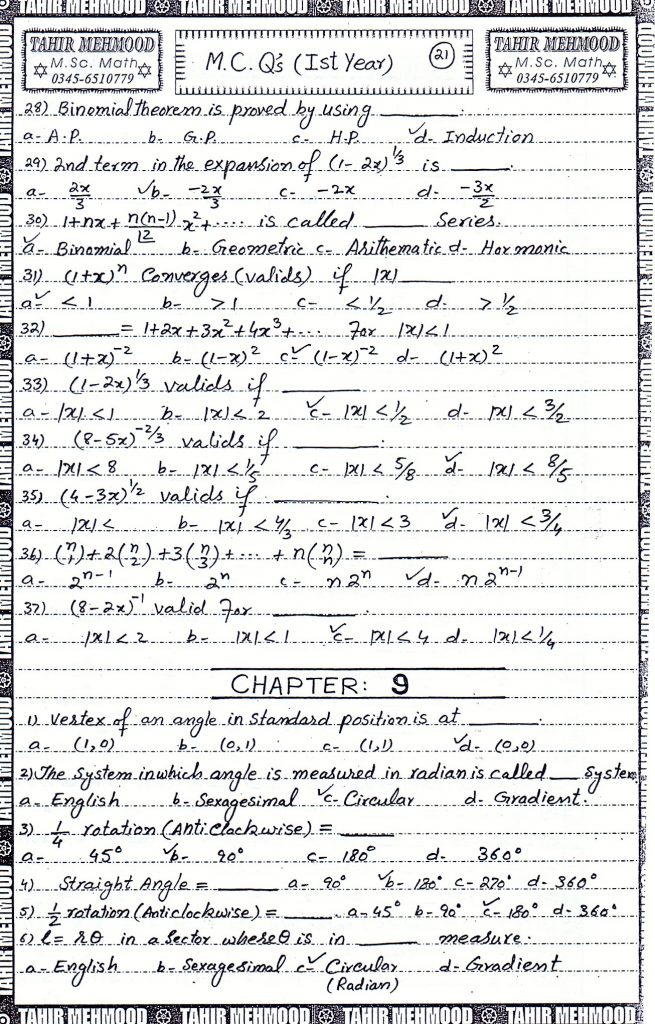 TAHIR MEHMOOD TAHIR MEHMOOD TAHIR MEHMOOD TAHIR MEHMOOD
TAHIR MEHMOOD
M.Sc. Math
0345-6510779
M.C.Q's (Ist Year) 21
TAHIR MEHMOOD
M.Sc. Math
0345-6510779
28) Binomial theorem is proved by using ______.
a- A.P. b- G.P. c- H.P. ✓d- Induction
29) 2nd term in the expansion of (1-2x)^1/3 is ______.
a- 2x/3 ✓b- -2x/3 c- -2x d- -3x/2
30) 1+nx+ n(n-1)/|2 x²+.... is called ______ Series.
✓a- Binomial b- Geometric c- Arithematic d- Hormonic
31) (1+x)^n Converges (valids) if |x| ______
a✓ <1 b- >1 c- <1/2 d- >1/2
32) ______ = 1+2x+3x²+4x³+... For |x|<1
a- (1+x)^-2 b- (1-x)^2 c✓ (1-x)^-2 d- (1+x)^2
33) (1-2x)^1/3 valids if ______
a- |x|<1 b- |x|<2 ✓c- |x|<1/2 d- |x|<3/2
34) (8-5x)^-2/3 valids if ______.
a- |x|<8 b- |x|<1/5 c- |x|<5/8 ✓d- |x|<8/5
35) (4-3x)^1/2 valids if ______.
a- |x|< b- |x|<4/3 c- |x|<3 ✓d- |x|<3/4
36) (n 1)+2(n 2)+3(n 3)+...+n(n n) = ______
a- 2^n-1 b- 2^n c- n2^n ✓d- n2^n-1
37) (8-2x)^-1 valid For ______.
a- |x|<2 b- |x|<1 ✓c- |x|<4 d- |x|<1/4
CHAPTER: 9
1) Vertex of an angle in standard position is at ______.
a- (1,0) b- (0,1) c- (1,1) ✓d- (0,0)
2) The System in which angle is measured in radian is called ___ System
a- English b- Sexagesimal ✓c- Circular d- Gradient.
3) 1/4 rotation (Anti clockwise) = ______
a- 45° ✓b- 90° c- 180° d- 360°
4) Straight Angle = ______ a- 90° ✓b- 180° c- 270° d- 360°
5) 1/2 rotation (Anticlockwise) = ______. a- 45° b- 90° ✓c- 180° d- 360°
6) l= rθ in a Sector where θ is in ______ measure.
a- English b- Sexagesimal c✓ Circular d- Gradient
(Radian)
TAHIR MEHMOOD TAHIR MEHMOOD TAHIR MEHMOOD TAHIR MEHMOOD